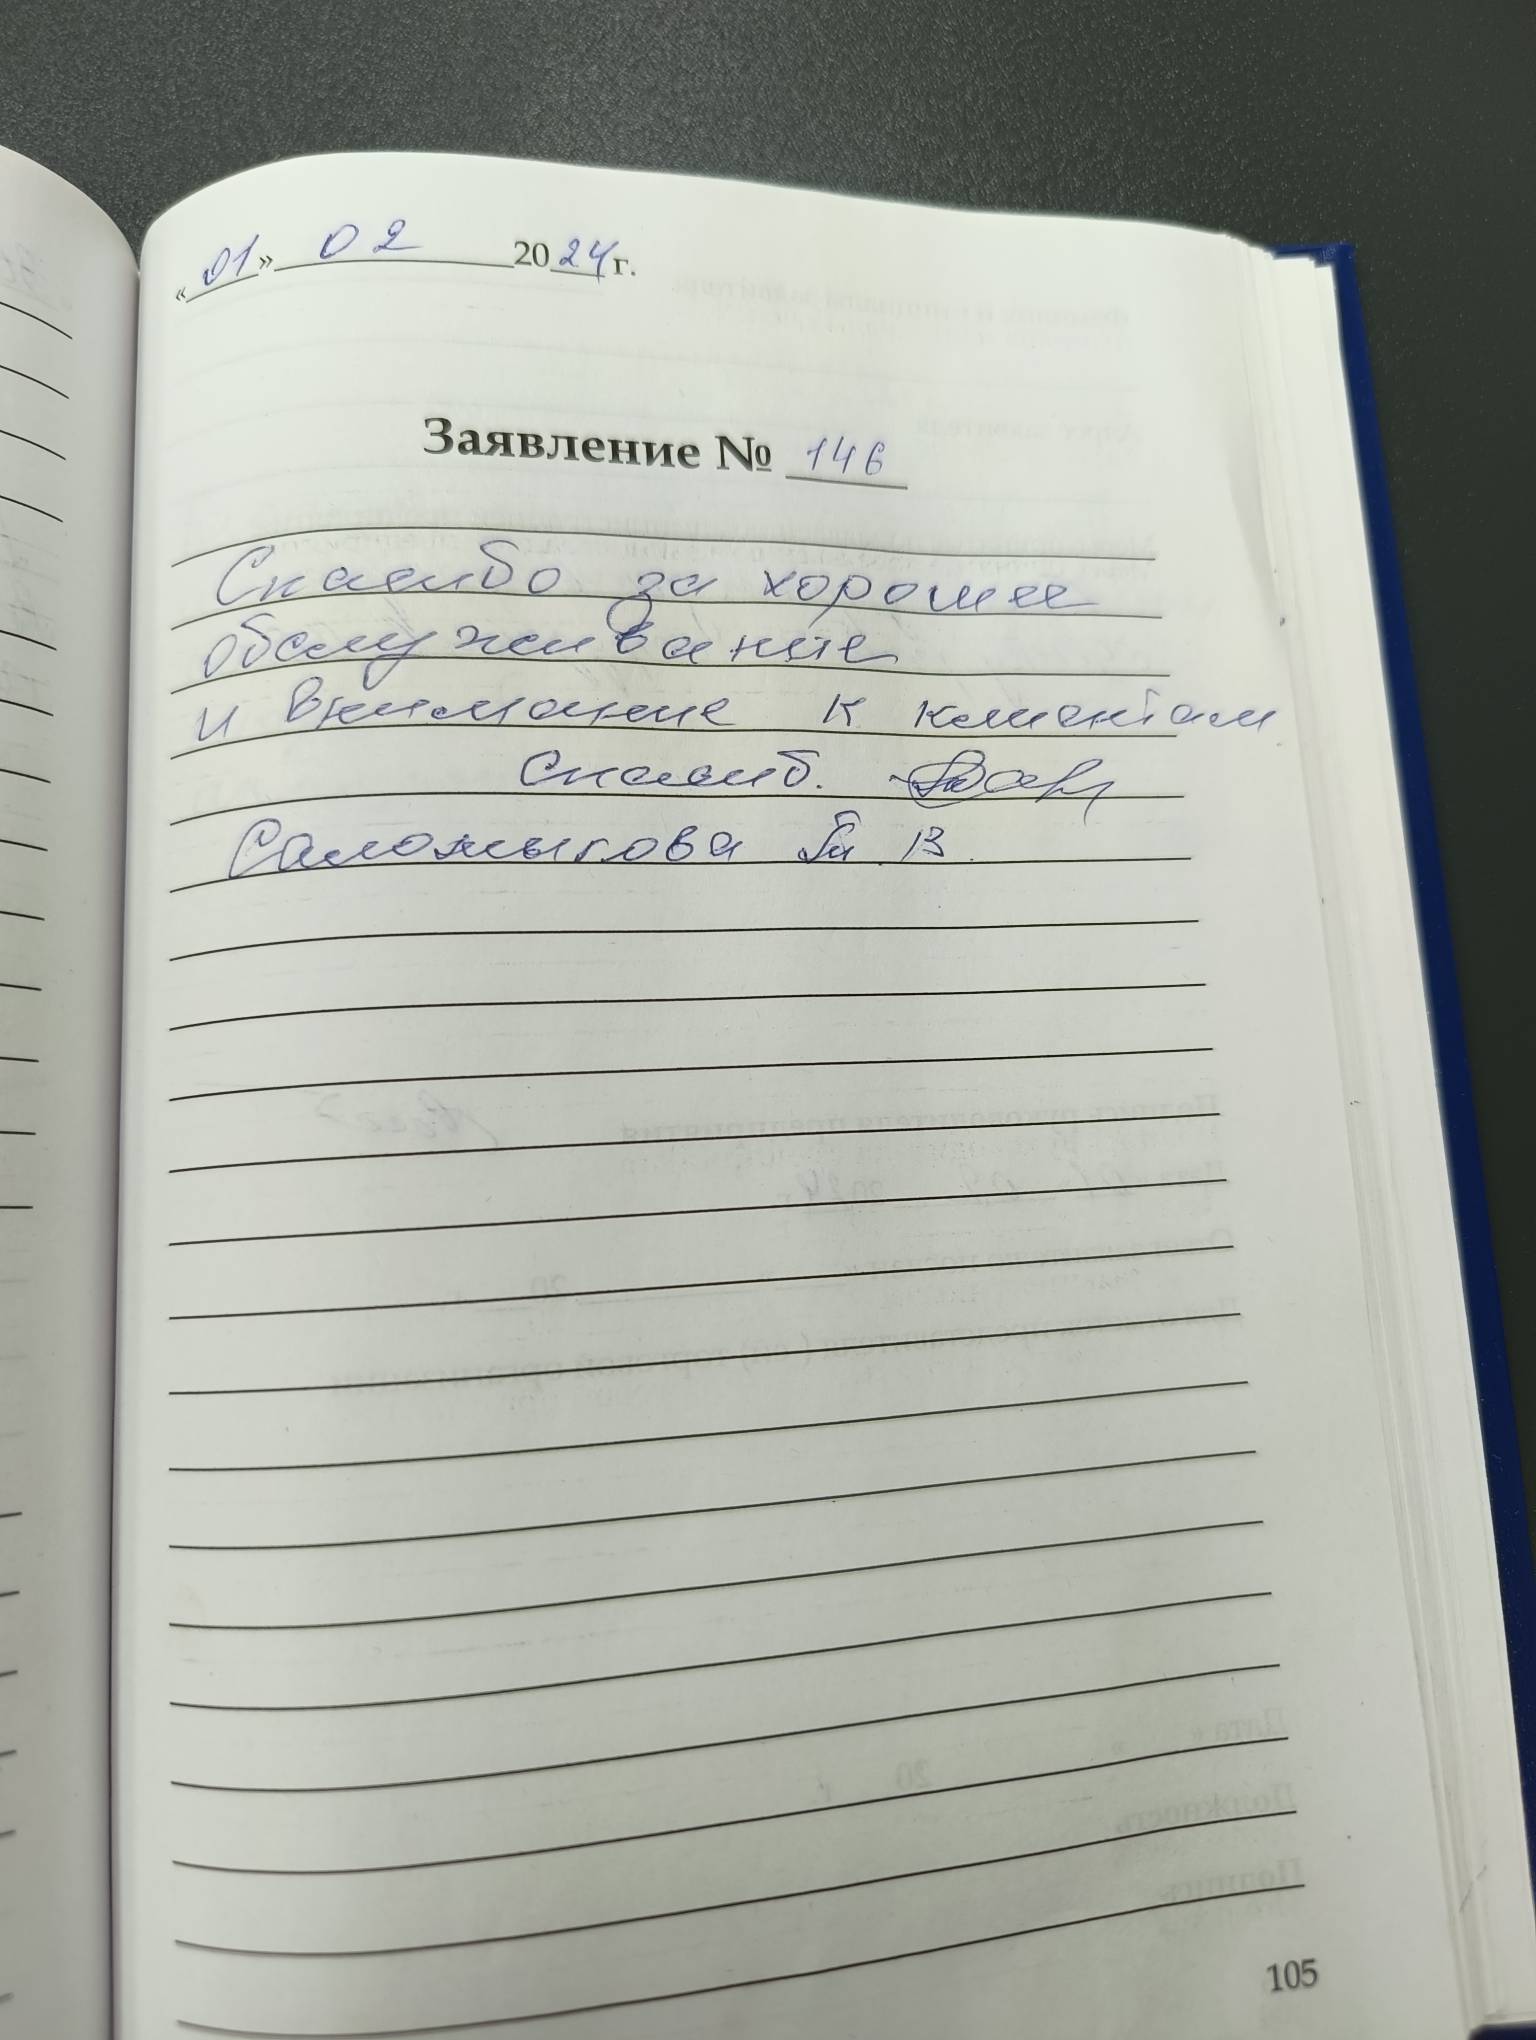 «01» 02 2024 г.
Заявление № 146
Спасибо за хорошее
обслуживание
и внимание к клиентам
Спасиб.
В.
105